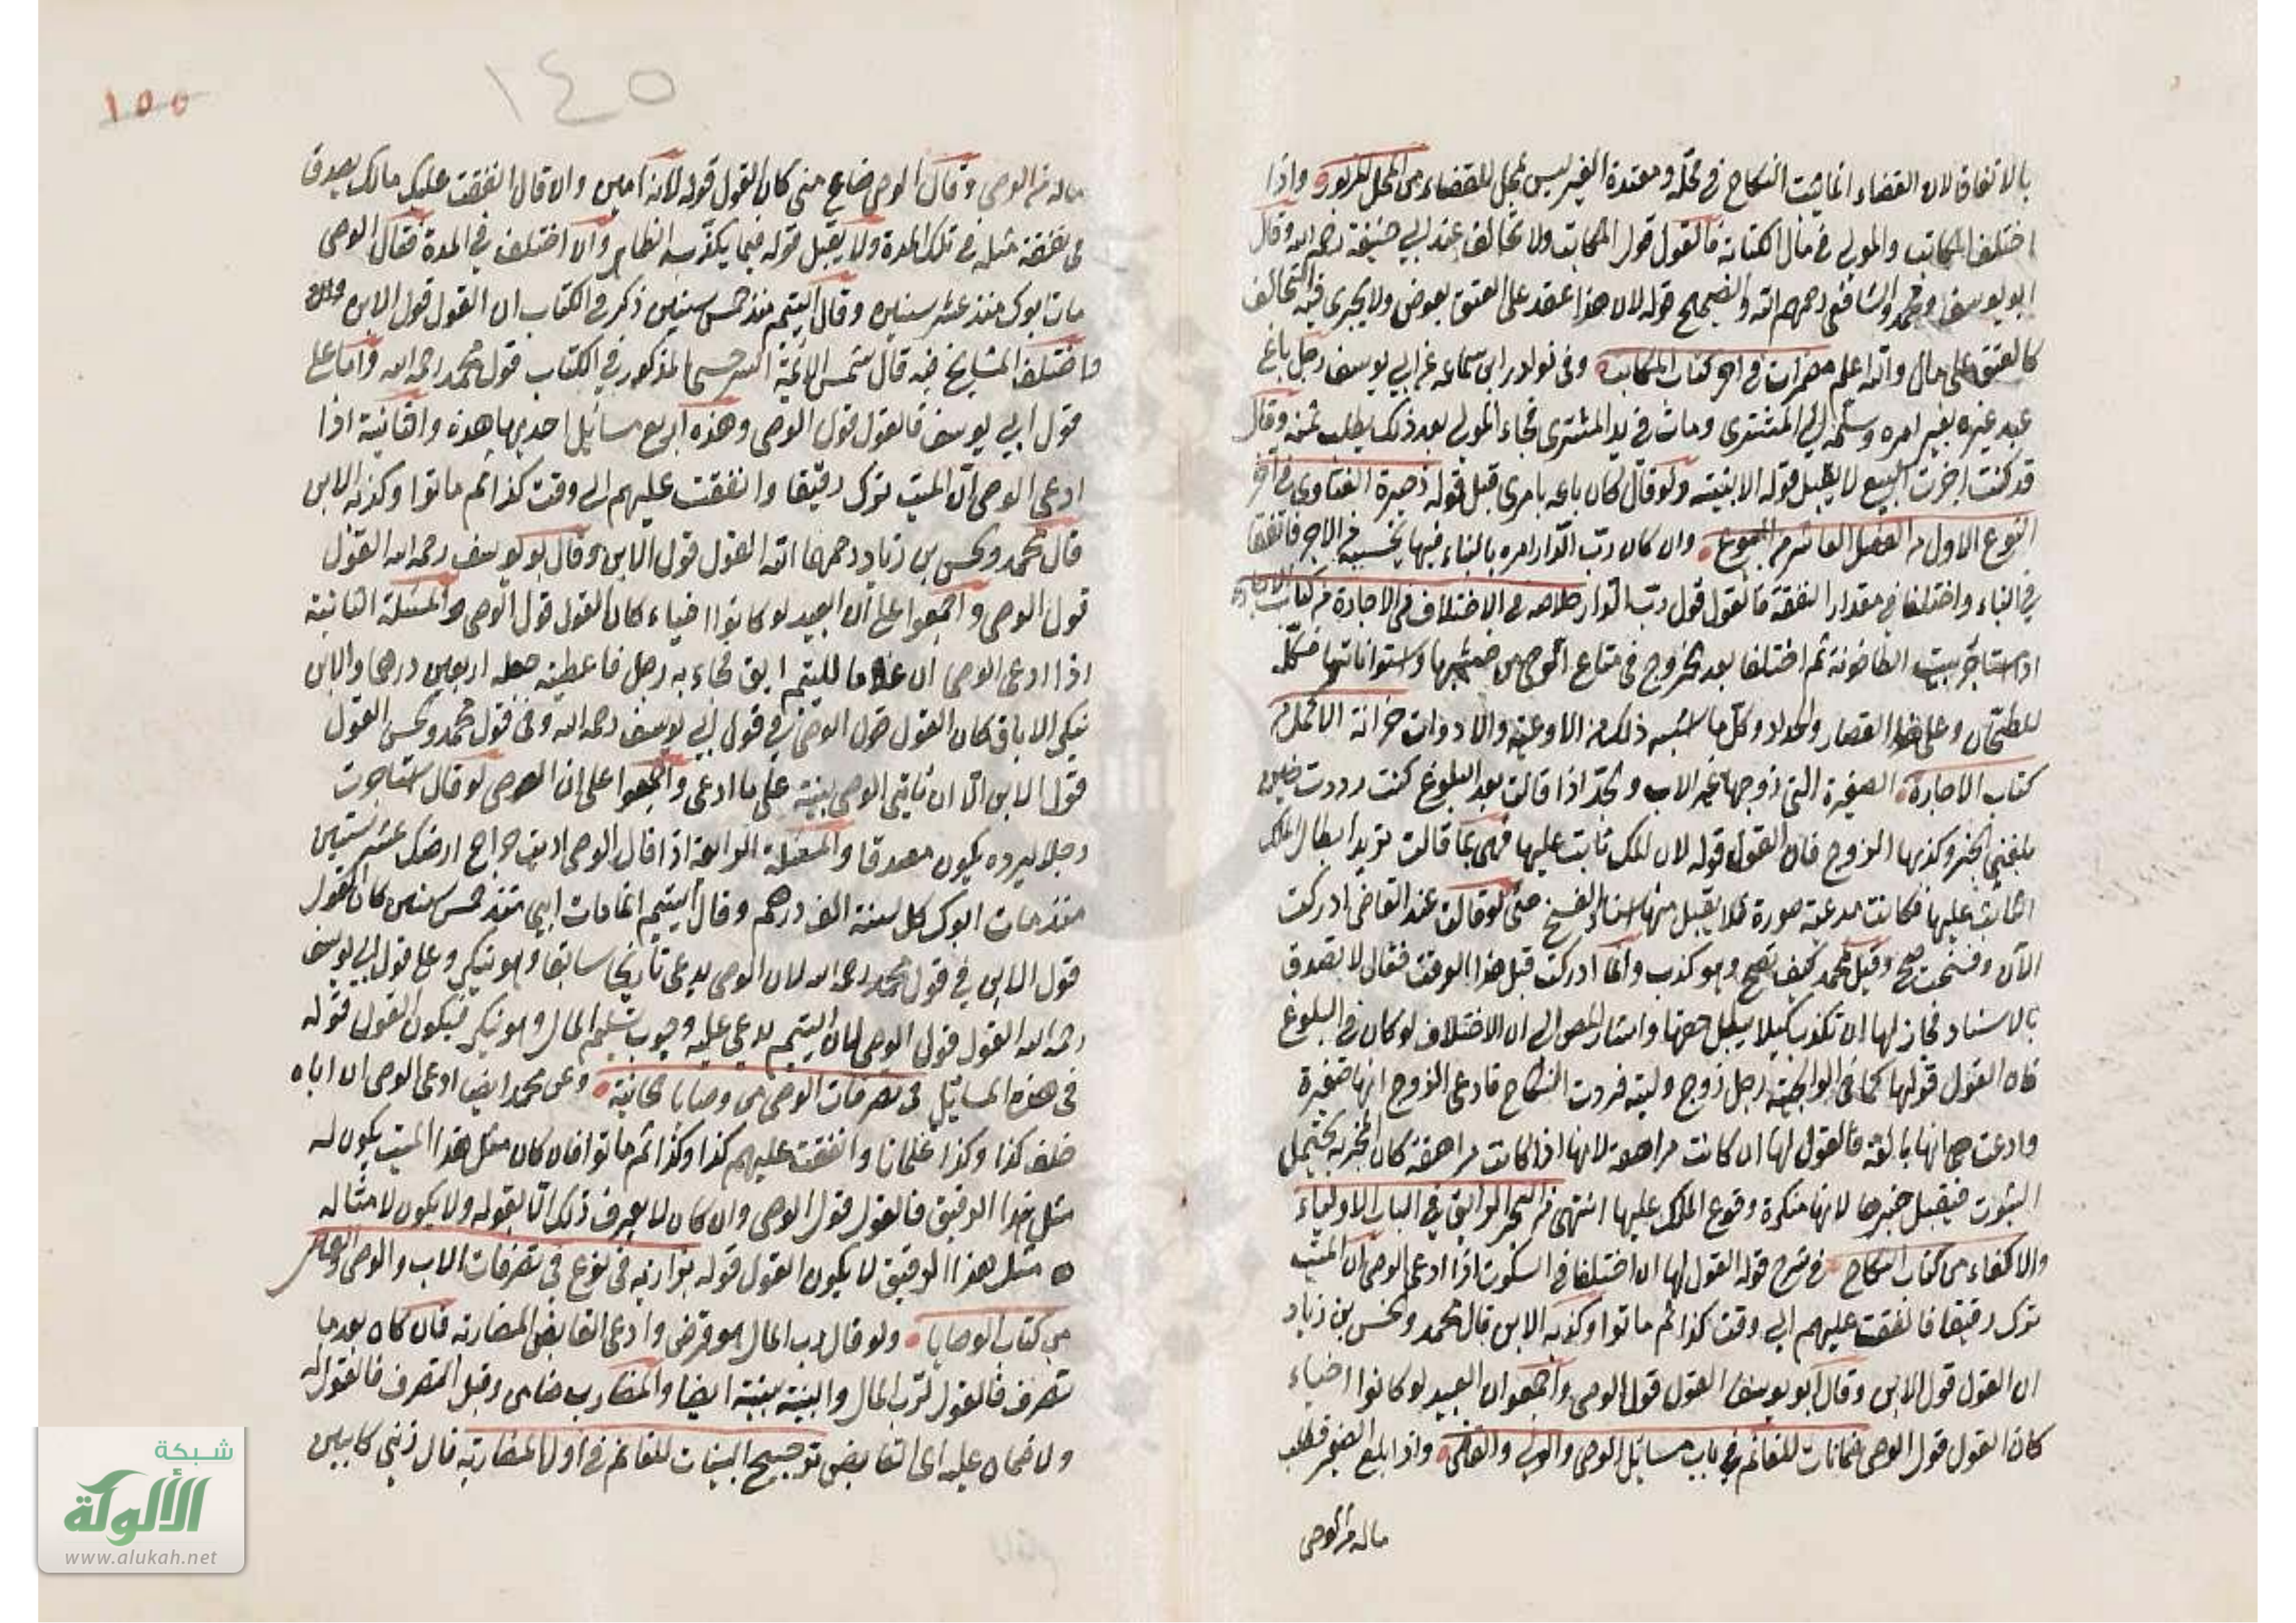 بالاتفاق لان القضاء انما يثبت النكاح في محله ومعتدة الغير ليس بمحل للقضاء من المحل المزبور واذا
اختلف المكاتب والمولى في مال الكتابة فالقول قول المكاتب ولا تحالف عند ابي حنيفة رحمه الله وقال
ابو يوسف ومحمد والشافعي رحمهم الله والصحيح قوله لان هذا عقد على العتق بعوض ولا يجرى فيه التحالف
كالعتق على مال والله اعلم مضمرات في اخر كتاب المكاتب وفي نوادر ابن سماعه عن ابي يوسف رجل باع
عبد غيره بغير امره وسلمه الى المشترى ومات في يد المشترى فجاء المولى بعد ذلك يطلب ثمنه وقال
قد كنت اجزت البيع لا يقبل قوله الا ببينته ولو قال كان باعه بامرى قبل قوله ذخيرة الفتاوى في اخر
النوع الاول من الفصل العاشر من البيوع وان كان رب الدار امره بالبناء فيها يحسبه من الاجر فاتفقا
في البناء واختلفا في مقدار النفقة فالقول قول رب الدار خلاصه في الاختلاف في الاجارة من كتاب الاجارة
اذا استاجر بيت الطاحونة ثم اختلفا بعد الخروج في متاع الرحى من خشبها واسطواناتها فكله
للطحان وعلى هذا القصار والحداد وكل ما اشبه ذلك من الاوعية والادوات خزانة الاكمل من
كتاب الاجارة الصغيرة التي زوجها غير الاب والجد اذا قالت بعد البلوغ كنت رددت حين
بلغني الخبر وكذبها الزوج فان القول قوله لان الملك ثابت عليها فهي بما قالت تريد ابطال الملك
الثابت عليها فكانت مدعية صورة فلا يقبل منها اسناد الفسخ حتى لو قالت عند القاضي ادركت
الآن وفسخت صح وقيل لمحمد كيف تصح وهو كذب وانما ادركت قبل هذا الوقت فقال لا تصدق
بالاسناد فجاز لها ان تكذب كيلا يبطل حقها واشار المص الى ان الاختلاف لو كان في البلوغ
فان القول قولها كما في الولوالجية رجل زوج وليته فردت النكاح فادعى الزوج انها صغيرة
وادعت هي انها بالغة فالقول لها ان كانت مراهقة لانها اذا كانت مراهقة كان المخبر به يحتمل
الثبوت فيقبل خبرها لانها منكرة وقوع الملك عليها انتهى من البحر الرائق في الباب الاولياء
والاكفاء من كتاب النكاح في شرح قوله القول لها ان اختلفا في السكوت اذا ادعى الوصى ان الميت
ترك رقيقا فانفقت عليهم الى وقت كذا ثم ماتوا وكذبه الابن قال محمد والحسن بن زياد
ان القول قول الابن وقال ابو يوسف القول قول الوصى واجمعوا ان العبيد لو كانوا احياء
كان القول قول الوصى ضمانات للغانم في باب مسائل الوصى والولى والقاضي واذا بلغ الصغير فطلب
ماله من الوصى
١٤٥
١٥٥
ماله من الوصى وقال الوصى ضاع منى كان القول قوله لانه امين وان قال انفقت عليك مالك يصدق
في نفقة مثله في تلك المدة ولا يقبل قوله فيما يكذبه الظاهر وان اختلف في المدة فقال الوصى
مات ابوك منذ عشر سنين وقال اليتيم منذ خمس سنين ذكر في الكتاب ان القول قول الابن
واختلف المشايخ فيه قال شمس الائمة السرخسى المذكور في الكتاب قول محمد رحمه الله واما على
قول ابي يوسف فالقول قول الوصى وهذه اربع مسائل احديها هذه والثانية اذا
ادعى الوصى ان الميت ترك رقيقا وانفقت عليهم الى وقت كذا ثم ماتوا وكذبه الابن
قال محمد والحسن بن زياد رحمهما الله القول قول الابن وقال ابو يوسف رحمه الله القول
قول الوصى واجمعوا على ان العبيد لو كانوا احياء كان القول قول الوصى والمسئلة الثانية
اذا ادعى الوصى ان غلاما لليتيم ابق فجاء به رجل فاعطيته جعله اربعين درهما والابن
ينكر الاباق كان القول قول الوصى في قول ابي يوسف رحمه الله وفي قول محمد والحسن القول
قول الابن الا ان ياتي الوصى ببينة على ما ادعى واجمعوا على ان الوصى لو قال استاجرت
رجلا ليرده يكون مصدقا والمسئلة الرابعة اذا قال الوصى اديت خراج ارضك عشر سنين
منذ مات ابوك كل سنة الف درهم وقال اليتيم انما مات ابي منذ خمس سنين كان القول
قول الابن في قول محمد رحمه الله لان الوصى يدعى تاريخا سابقا وهو ينكر وعلى قول ابي يوسف
رحمه الله القول قول الوصى لان اليتيم يدعى عليه وجوب تسليم المال وهو ينكر فيكون القول قوله
في هذه المسائل في تصرفات الوصى من وصايا خانية وعن محمد ايضا ادعى الوصى ان اباه
خلف كذا وكذا غلمانا وانفقت عليهم كذا وكذا ثم ماتوا فان كان مثل هذا الميت يكون له
مثل هذا الرقيق فالقول قول الوصى وان كان لا يعرف ذلك الا بقوله ولا يكون لامثاله
مثل هذا الرقيق لا يكون القول قوله بزازيه في نوع في تصرفات الاب والوصى والقاضي
من كتاب الوصايا ولو قال رب المال هو قرض وادعى القابض المضاربه فان كان بعد ما
تصرف فالقول لرب المال والبينة بينته ايضا والمضارب ضامن وقبل التصرف فالقول له
ولا ضمان عليه اى القابض ترجيح البينات للغانم في اول المضاربه قال ذنى كابين
شبكة
الألوكة
www.alukah.net